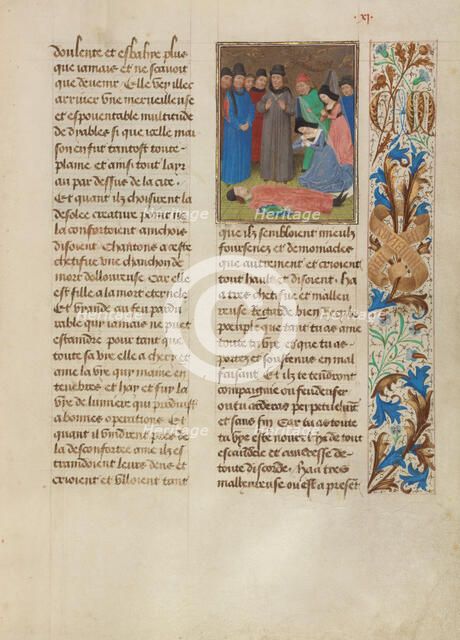 .xj.
doulente et esbahie plus
que iamais et ne scauoit
que deuenir. Elle veyt illec
arriuer vne merueilleuse
et espouentable multitude
de dyables si que icelle mai
son en fut tantost toute
plaine et ainsi tout l'ayr
au par dessus de la cite.
Et quant ilz choisirent la
desolee creature point ne
la confortoient ainchois
disoient. Chantons a ceste
chetifue vne chanchon de
mort delloureuse. Car elle
est fille a la mort eternele
Et viande au feu pardu
rable qui iamais ne puet
estaindre pour tant que
toute sa vye elle a chery et
ame la vye qui maine en
tenebres et hay et fuy la
vye de lumiere qui produist
a bonnes operations. Et
quant ilz vindrent pres de
la desconfortee ame ilz es
traindoient leurs dens et
crioient et vlloient tant
que ilz sembloient mieulx
foursenez et demoniacles
que autrement et crioient
tout hault et disoient. Ha
a tres chetifue et malleu
reuse Regarde bien icy le
peuple que tant tu as ame
toute ta vye et que tu as
portez et soustenus en mal
faisant Et ilz te tendront
compaignie ou feu denfer
ou tu arderas perpetuelment
et sans fin Car tu as toute
ta vye este nourrice de tout
escandele et ameresse de
toute discorde. Haa tres
malheureuse ou est a present
Heritage
Images
Heritage
Images
Heritage
Images
Heritage
Images